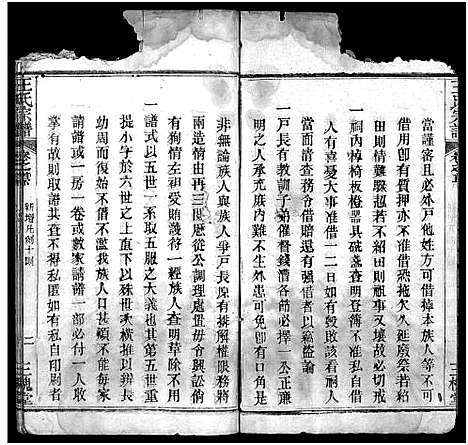 當謹審且必外戶他姓方可借掉本族人等不可
借用然必有質押亦不准借恐拖欠久延廢祭若
借之後情
避若不紹田則祀事又壞故必戒
一祠
椅板橙器具碗盞查明登簿不准私借或
人有喜憂大事准借一二日如有毀敗該看祠人
當面清查務令借賠還有強借者以竊盜論
一戶長有教訓子弟催督錢漕各節必擇一公正廉
明之人承充庶內難不生外患可免倘有口角是
非無論族人與族人爭戶長俱有排解權限務將
兩造情由再三曉
從公調理處置毋令興訟倘
有狗情左袒受賄
待一經族人查明草除不用
一譜式以五世一系取五服之大義也其第五世重
提小字於六世之上直下以殊世數橫推以辨長
幼周而復始不
不濫我族人口甚
不能每家
請譜或一房一卷或數家請譜一部必付一人收
掌有故則取譜共查不得私匿如有私自印刷者
王氏宗譜
新增凡例十則
二
三槐堂